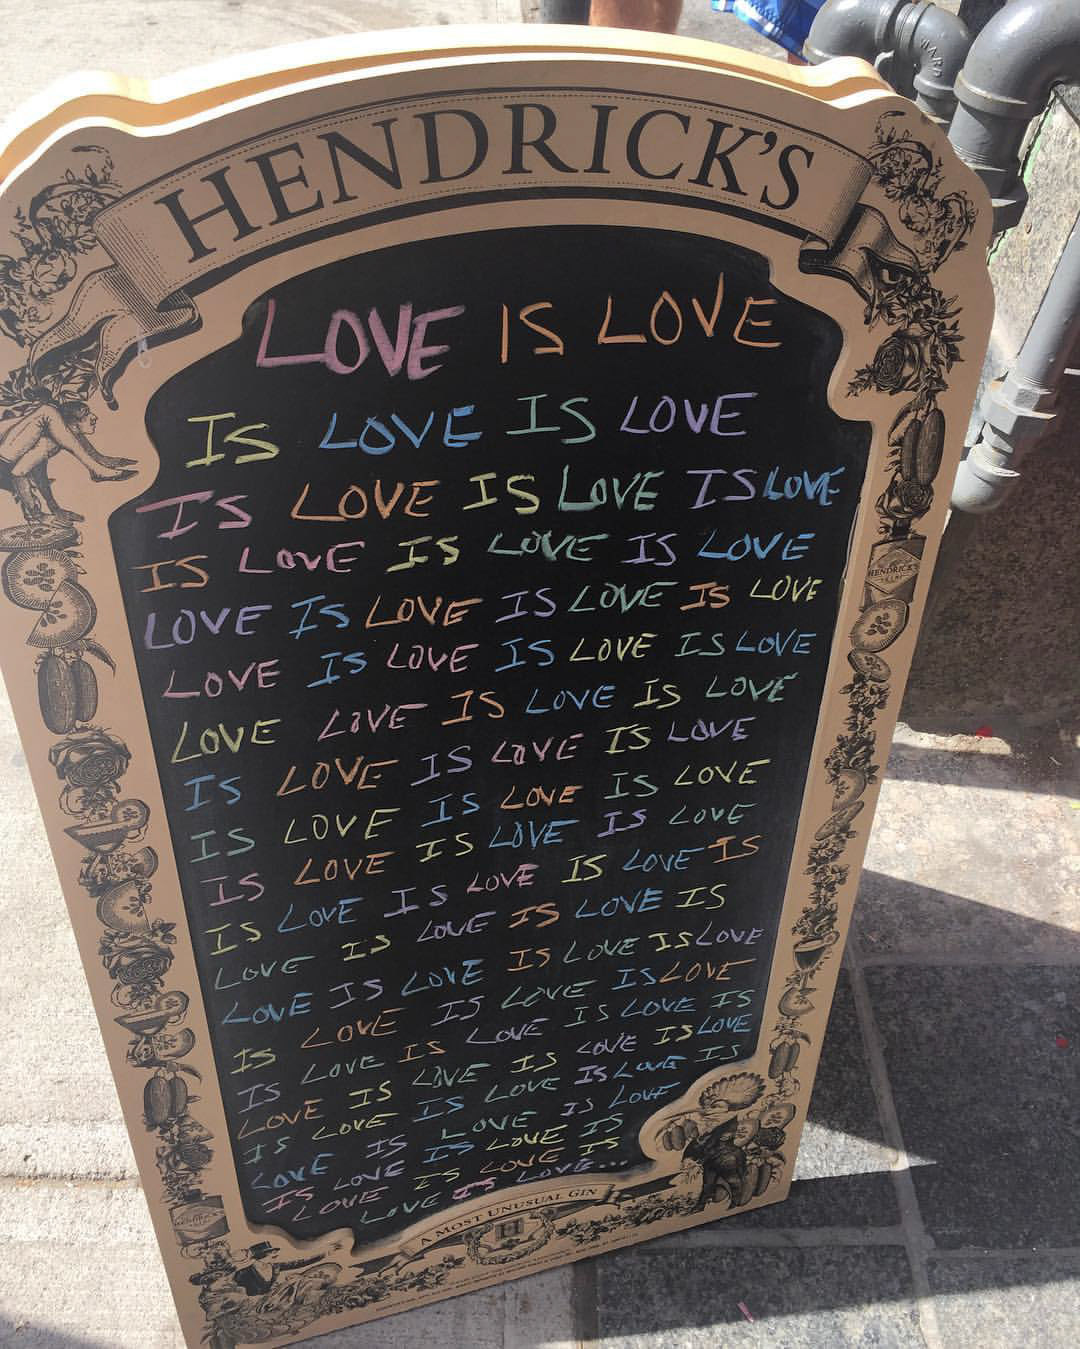 WARD
HENDRICK'S
LOVE IS LOVE
IS LOVE IS LOVE
IS LOVE IS LOVE IS LOVE
IS LOVE IS LOVE IS LOVE
LOVE IS LOVE IS LOVE IS LOVE
LOVE IS LOVE IS LOVE IS LOVE
LOVE LOVE IS LOVE IS LOVE
IS LOVE IS LOVE IS LOVE
IS LOVE IS LOVE IS LOVE
IS LOVE IS LOVE IS LOVE
IS LOVE IS LOVE IS LOVE IS
LOVE IS LOVE IS LOVE IS
LOVE IS LOVE IS LOVE IS LOVE
IS LOVE IS LOVE IS LOVE
IS LOVE IS LOVE IS LOVE IS
LOVE IS LOVE IS LOVE IS LOVE
IS LOVE IS LOVE IS LOVE IS
LOVE IS LOVE IS LOVE
IS LOVE IS LOVE IS
LOVE IS LOVE IS
LOVE IS LOVE...
A MOST UNUSUAL GIN
H
HENDRICK'S